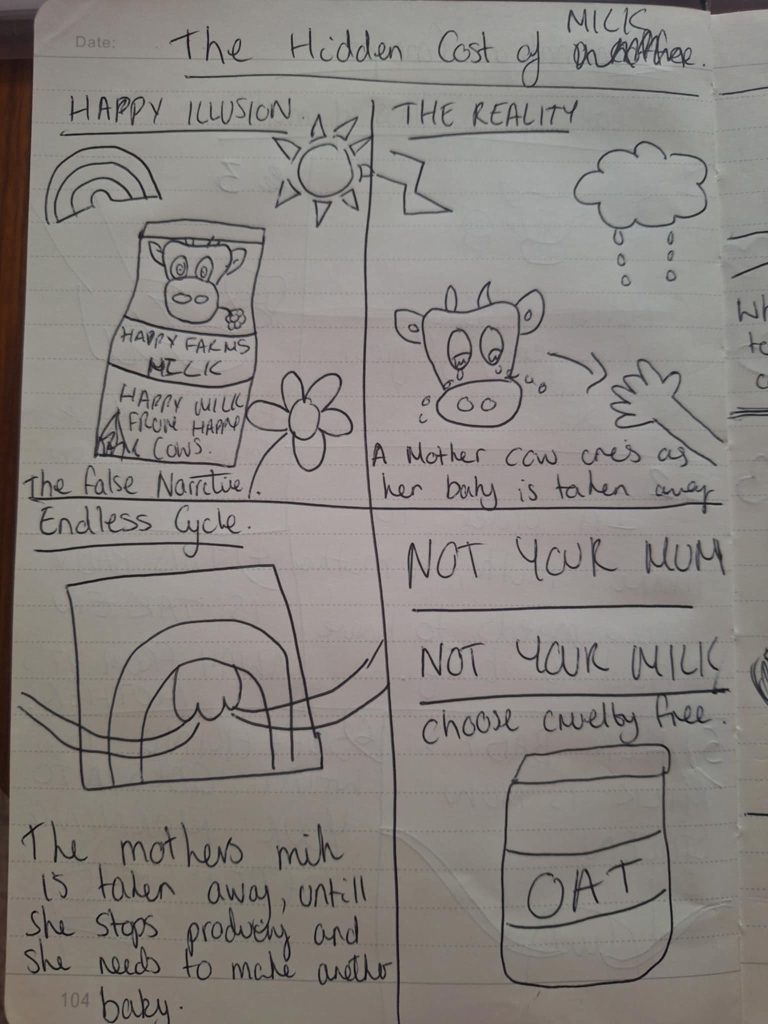 Date:
The Hidden Cost of MILK
HAPPY ILLUSION
THE REALITY
HAPPY FARMS
MILK
HAPPY MILK
FROM HAPPY
COWS.
The false Narritive.
A Mother cow cries as
her baby is taken away
Endless Cycle.
The mothers milk
is taken away, untill
she stops producing and
she needs to make another
baby.
NOT YOUR MUM
NOT YOUR MILK
choose cruelty free.
OAT
104
Wh